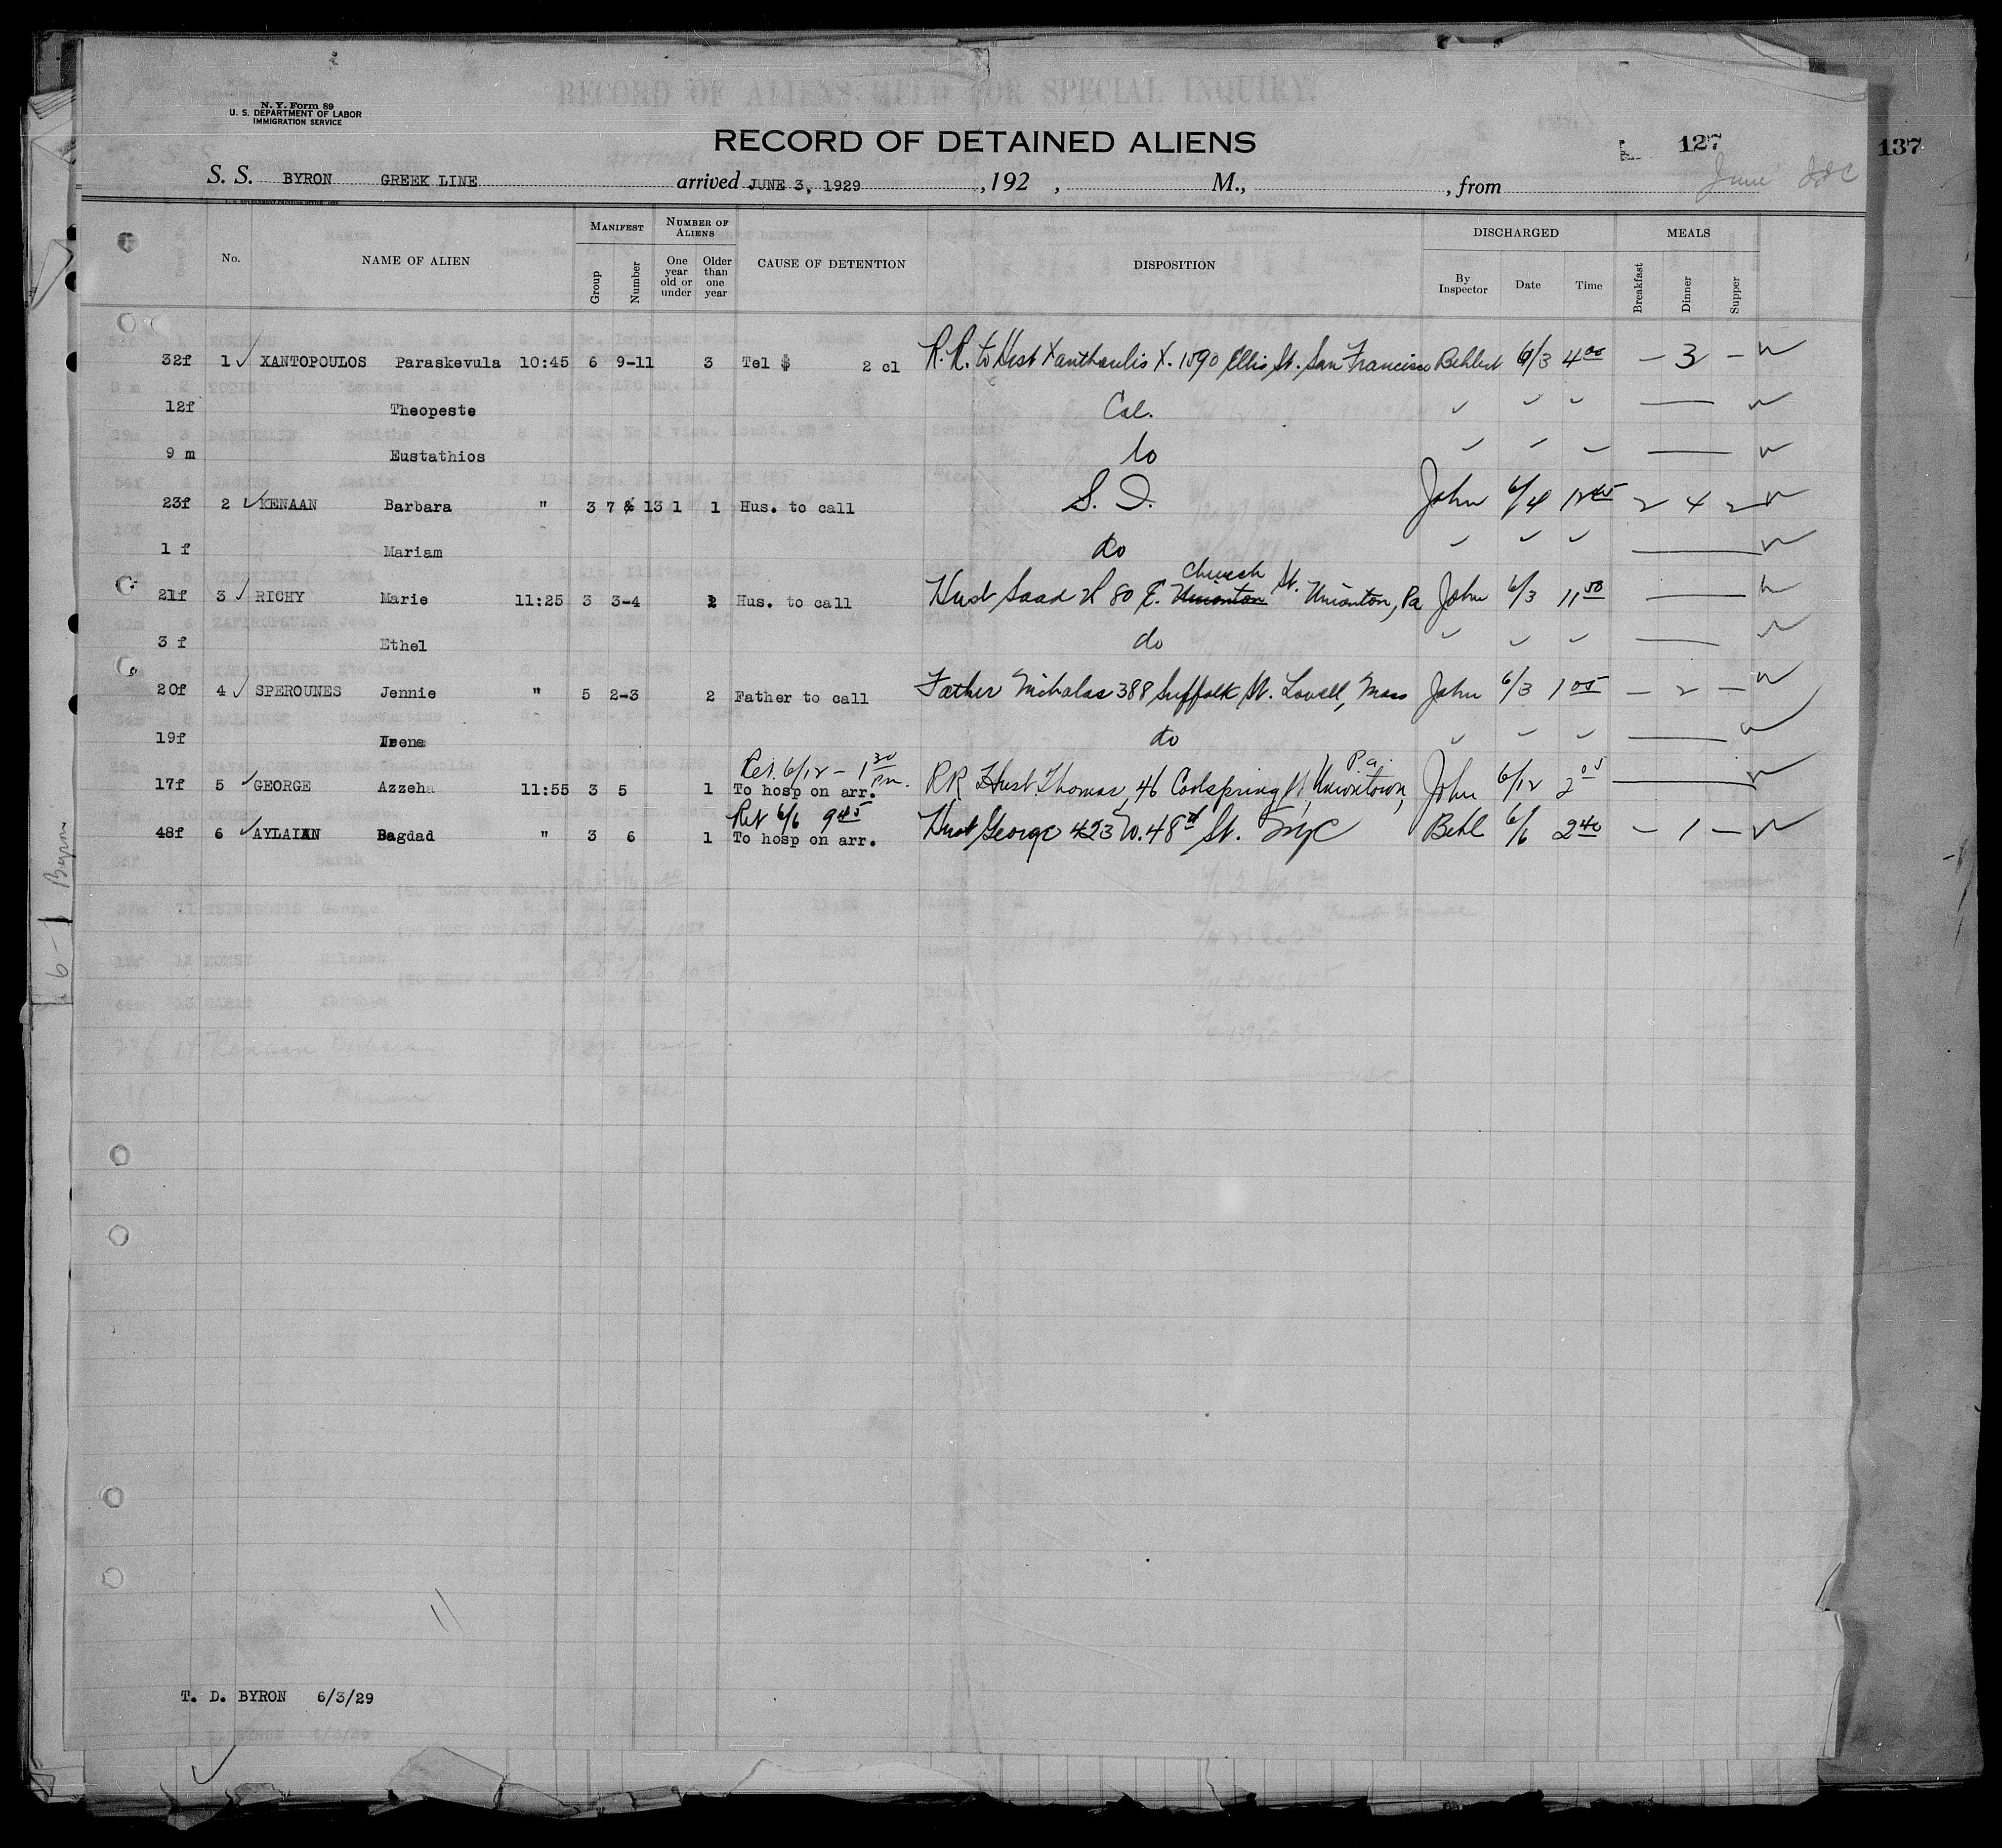 N. Y. Form 89
U. S. DEPARTMENT OF LABOR
IMMIGRATION SERVICE
RECORD OF DETAINED ALIENS
127
137
June
S. S. BYRON GREEK LINE arrived JUNE 3, 1929, 192 , M., , from
No. NAME OF ALIEN MANIFEST Group Number NUMBER OF ALIENS One year old or under Older than one year CAUSE OF DETENTION DISPOSITION DISCHARGED By Inspector Date Time MEALS Breakfast Dinner Supper
32f 1 ✓ XANTOPOULOS Paraskevula 10:45 6 9-11 3 Tel $ 2 cl R.R. to Hust Xanthoulis X. 1090 Ellis St. San Francisco 6/3 4 00 – 3 –
12f Theopeste Cal.
9 m Eustathios do
23f 2 ✓ KENAAN Barbara " 3 7 & 13 1 1 Hus. to call S. I. John 6/4 12 45 2 4 2
1 f Mariam do
21f 3 ✓ RICHY Marie 11:25 3 3-4 2 Hus. to call Hust Saad 80 E. Church St. Unionton, Pa John 6/3 11 50
3 f Ethel do
20f 4 ✓ SPEROUNES Jennie " 5 2-3 2 Father to call Father Nicholas 388 Suffolk St. Lowell, Mass John 6/3 1 05 – 2 –
19f Irene do
Ret. 6/12 – 1 30 pm.
17f 5 ✓ GEORGE Azzeha 11:55 3 5 1 To hosp on arr. RR Hust. Thomas, 46 Coolspring St, Uniontown, Pa. John 6/12 2 05
Ret 6/6 9 45
48f 6 ✓ AYLAIAN Bagdad " 3 6 1 To hosp on arr. Hust George 423 W. 48th St. NYC Behl 6/6 2 40 – 1 –
6-1 Byron
T. D. BYRON 6/3/29